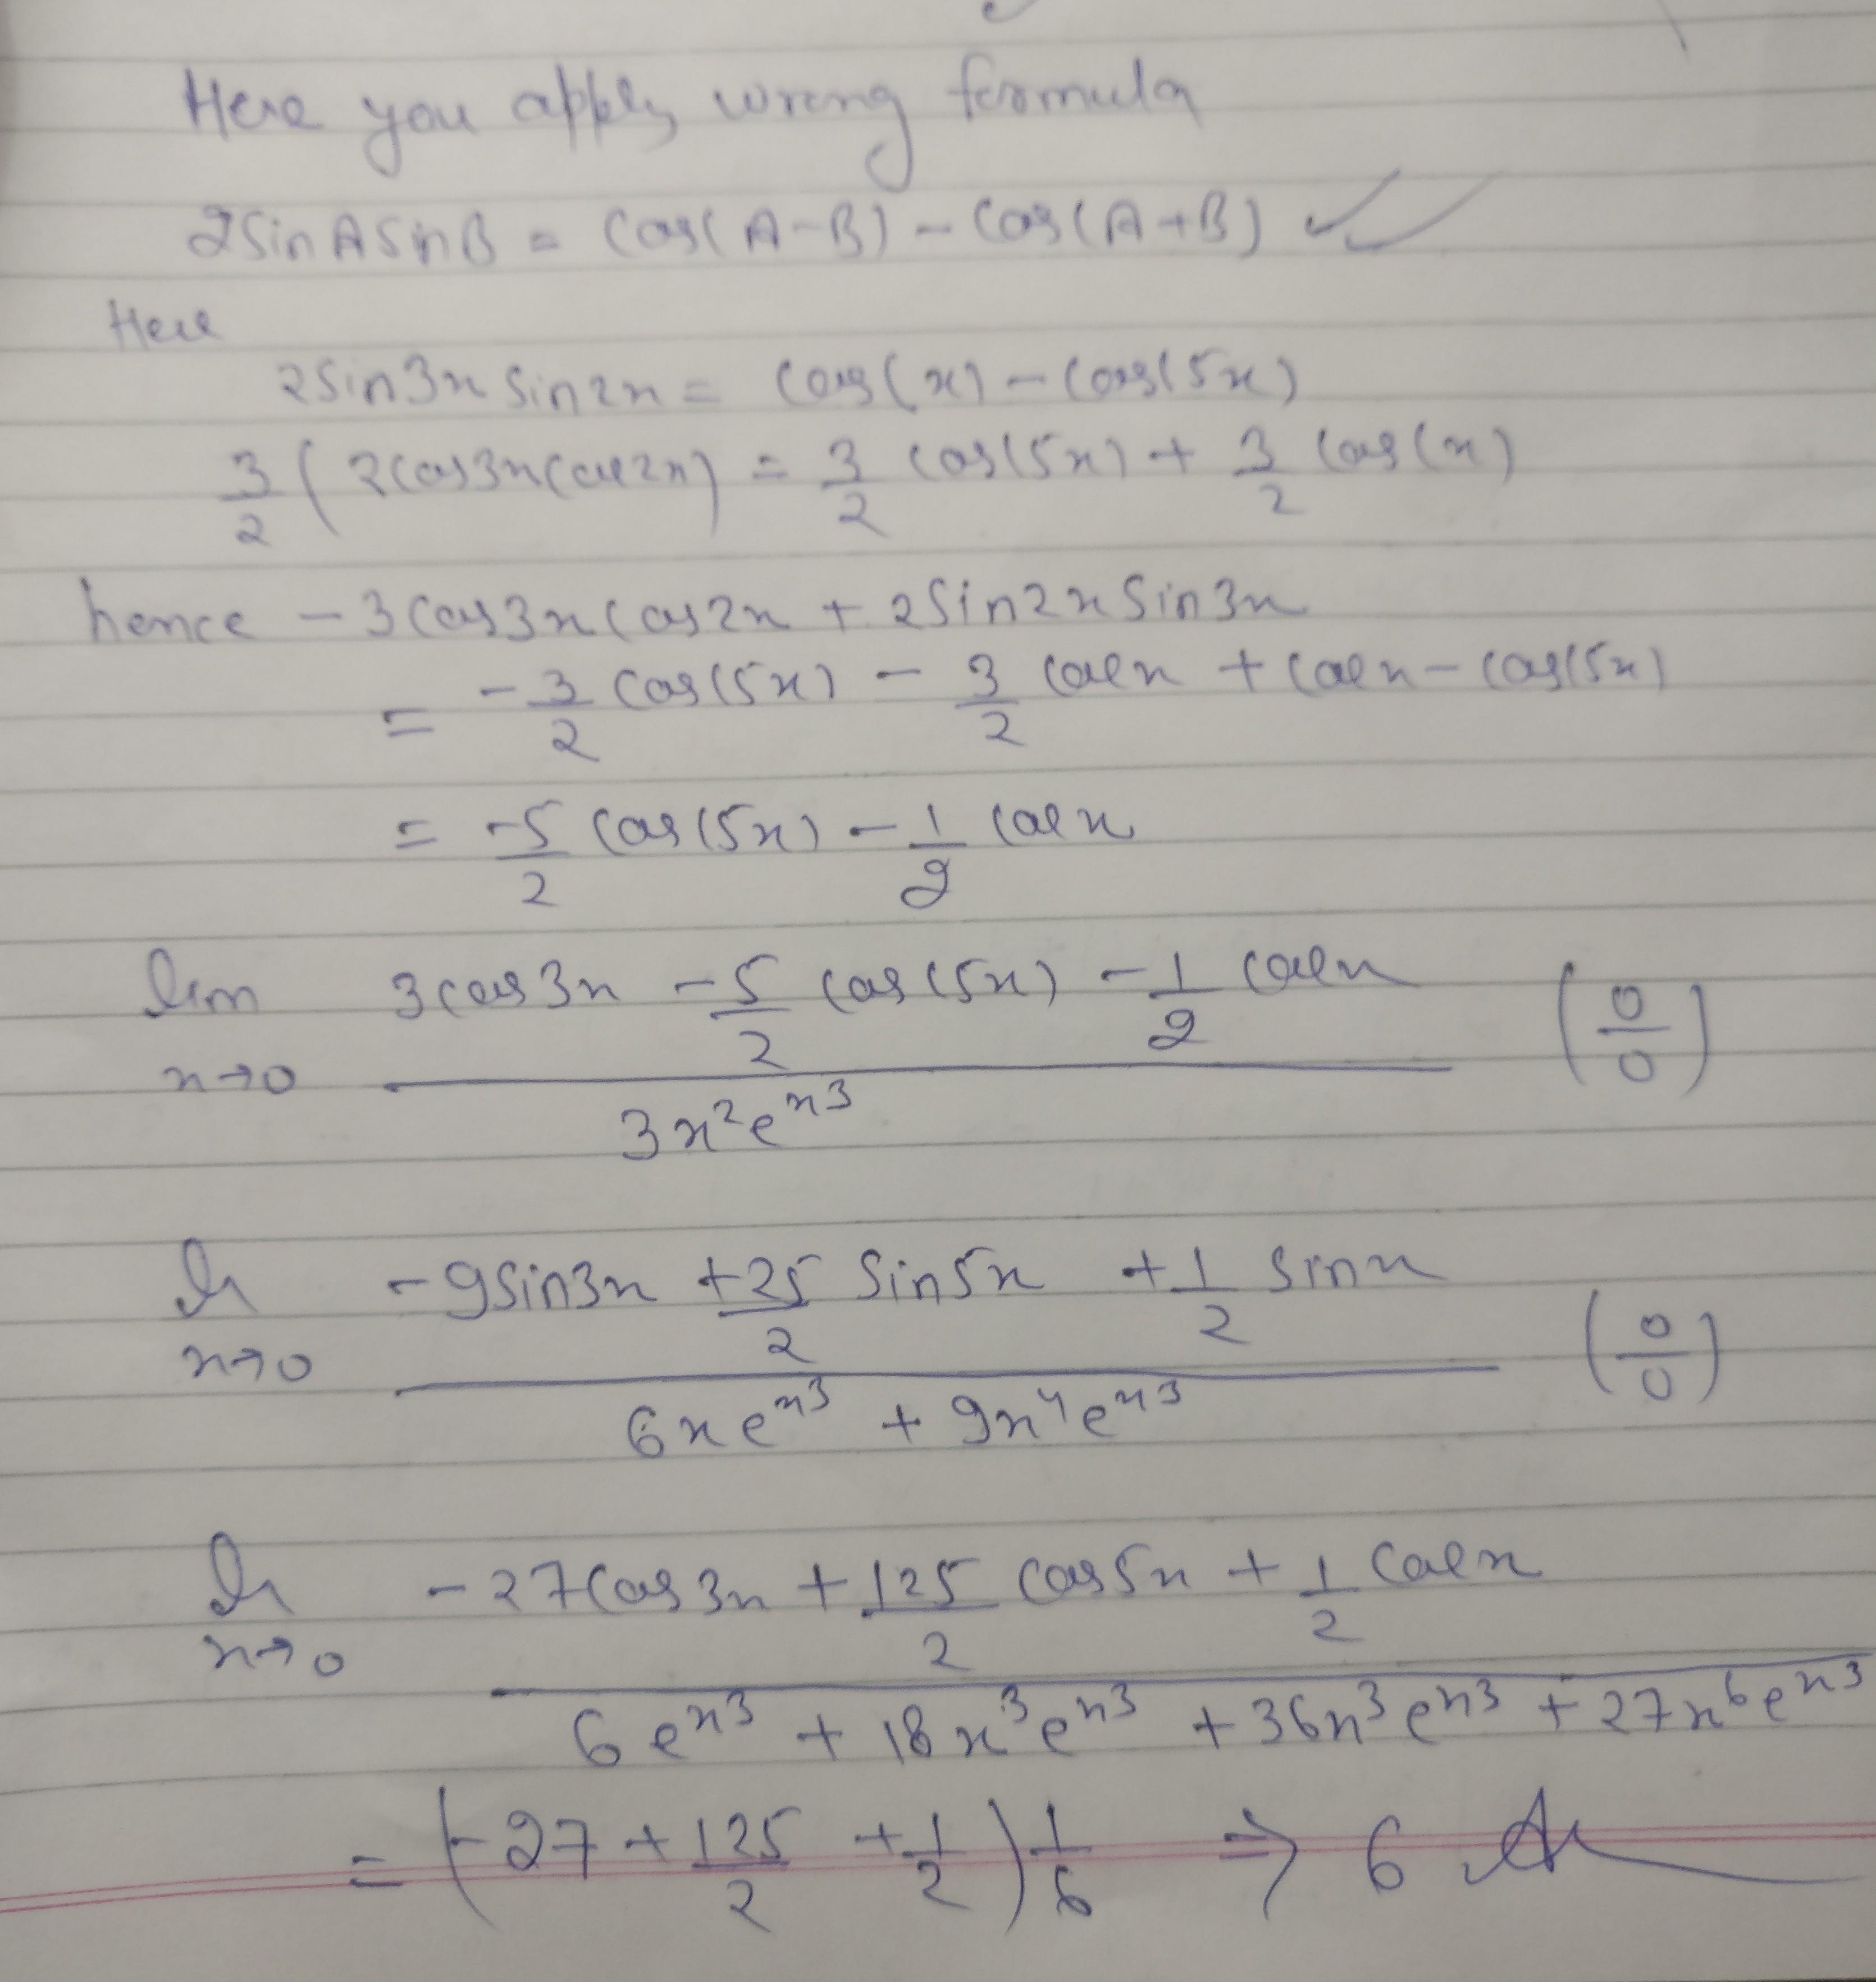 Here you apply wrong formula
2SinASinB = Cos(A-B) - Cos(A+B) ✓✓
Here
2Sin3x Sin2x = Cos(x) - Cos(5x)
3/2 (2Cos3xCos2x) = 3/2 Cos(5x) + 3/2 Cos(x)
hence -3Cos3xCos2x + 2Sin2xSin3x
= -3/2 Cos(5x) - 3/2 Cosx + Cosx - Cos(5x)
= -5/2 Cos(5x) - 1/2 Cosx
lim x→0 (3cos3x - 5/2 cos(5x) - 1/2 cosx) / (3x²e^x³) (0/0)
lt x→0 (-9Sin3x + 25/2 Sin5x + 1/2 Sinx) / (6xe^x³ + 9x⁴e^x³) (0/0)
lt x→0 (-27Cos3x + 125/2 Cos5x + 1/2 Cosx) / (6e^x³ + 18x³e^x³ + 36x³e^x³ + 27x⁶e^x³)
= (-27 + 125/2 + 1/2) 1/6 ⇒ 6